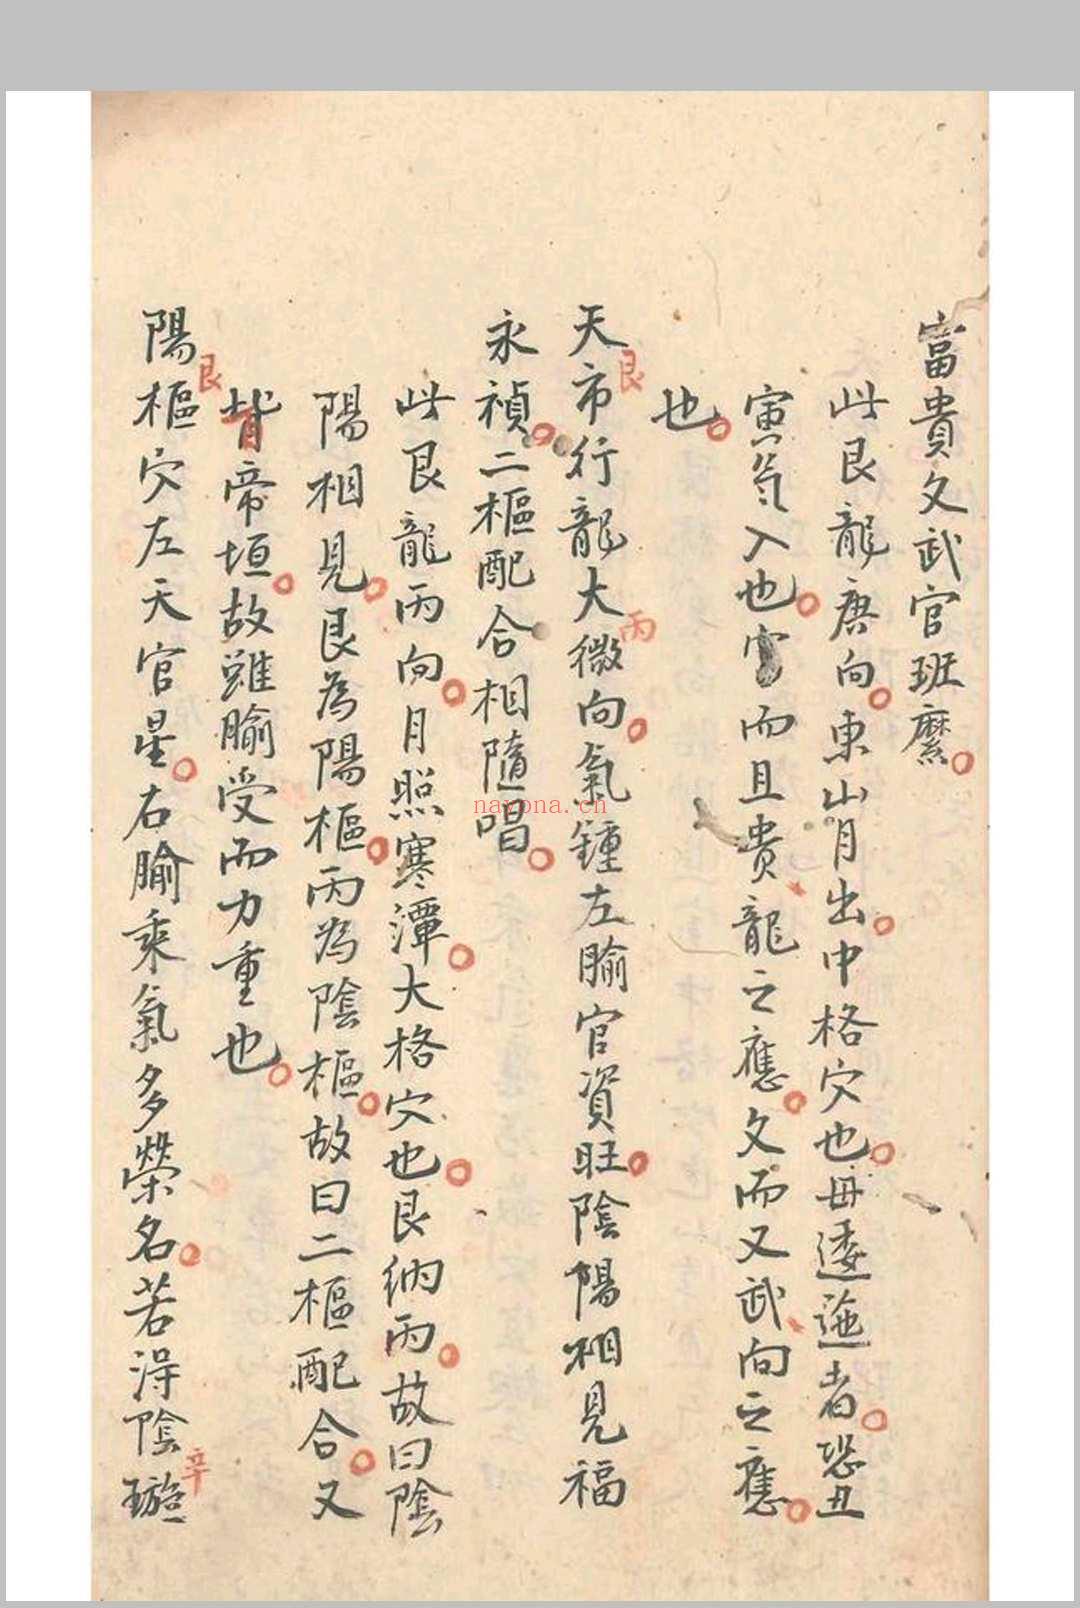 富貴文武官班縻
此艮龍庚向東山月出中格穴也毋逶迤者恐丑
寅氣入也富而且貴龍之應文而又武向之應
也
天市行龍大微向氣鍾左腧官資旺陰陽相見福
艮
丙
永禎二樞配合相隨唱
此艮龍丙向月照寒潭大格穴也艮納丙故曰陰
陽相見艮為陽樞丙為陰樞故曰二樞配合又
背帝垣故雖腧受而力重也
陽樞穴左天官星右腧乘氣多榮名若淂陰璇
艮
辛
nayona.cn